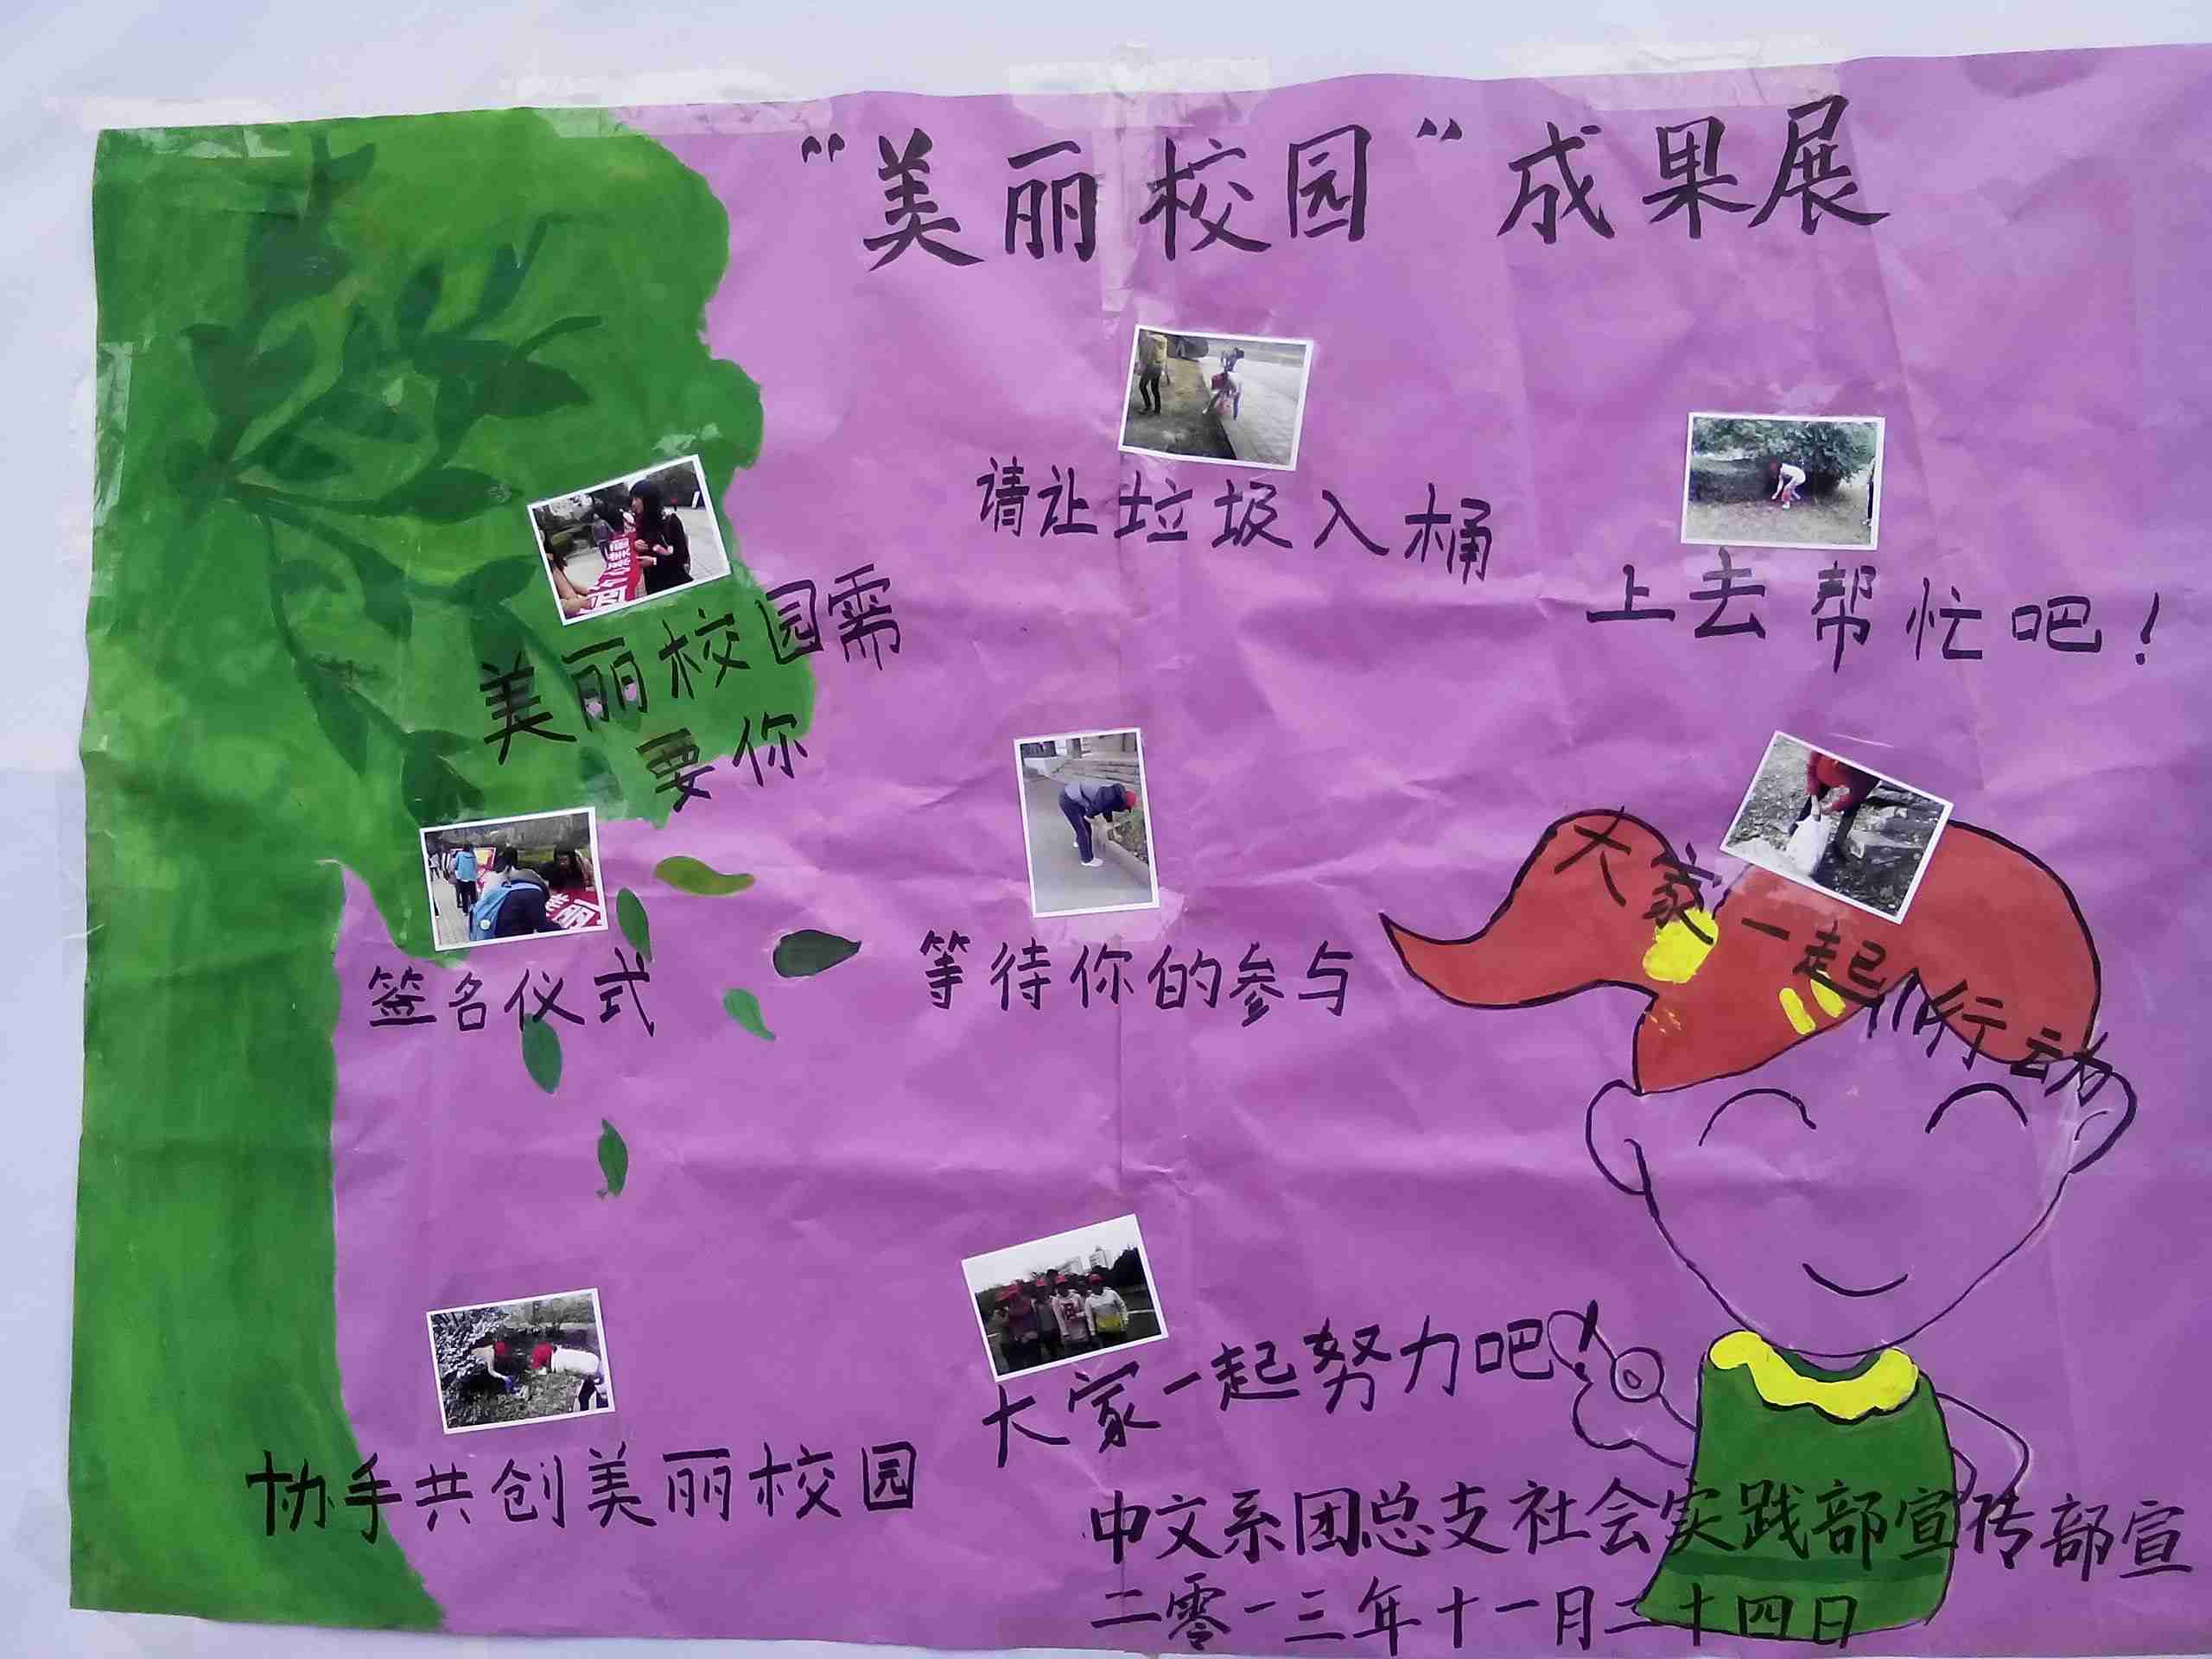 “美丽校园”成果展
请让垃圾入桶
上去帮忙吧！
美丽校园需
要你
签名仪式
等待你的参与
大家一起行动
协手共创美丽校园
大家一起努力吧
中文系团总支社会实践部宣传部宣
二零一三年十一月二十四日